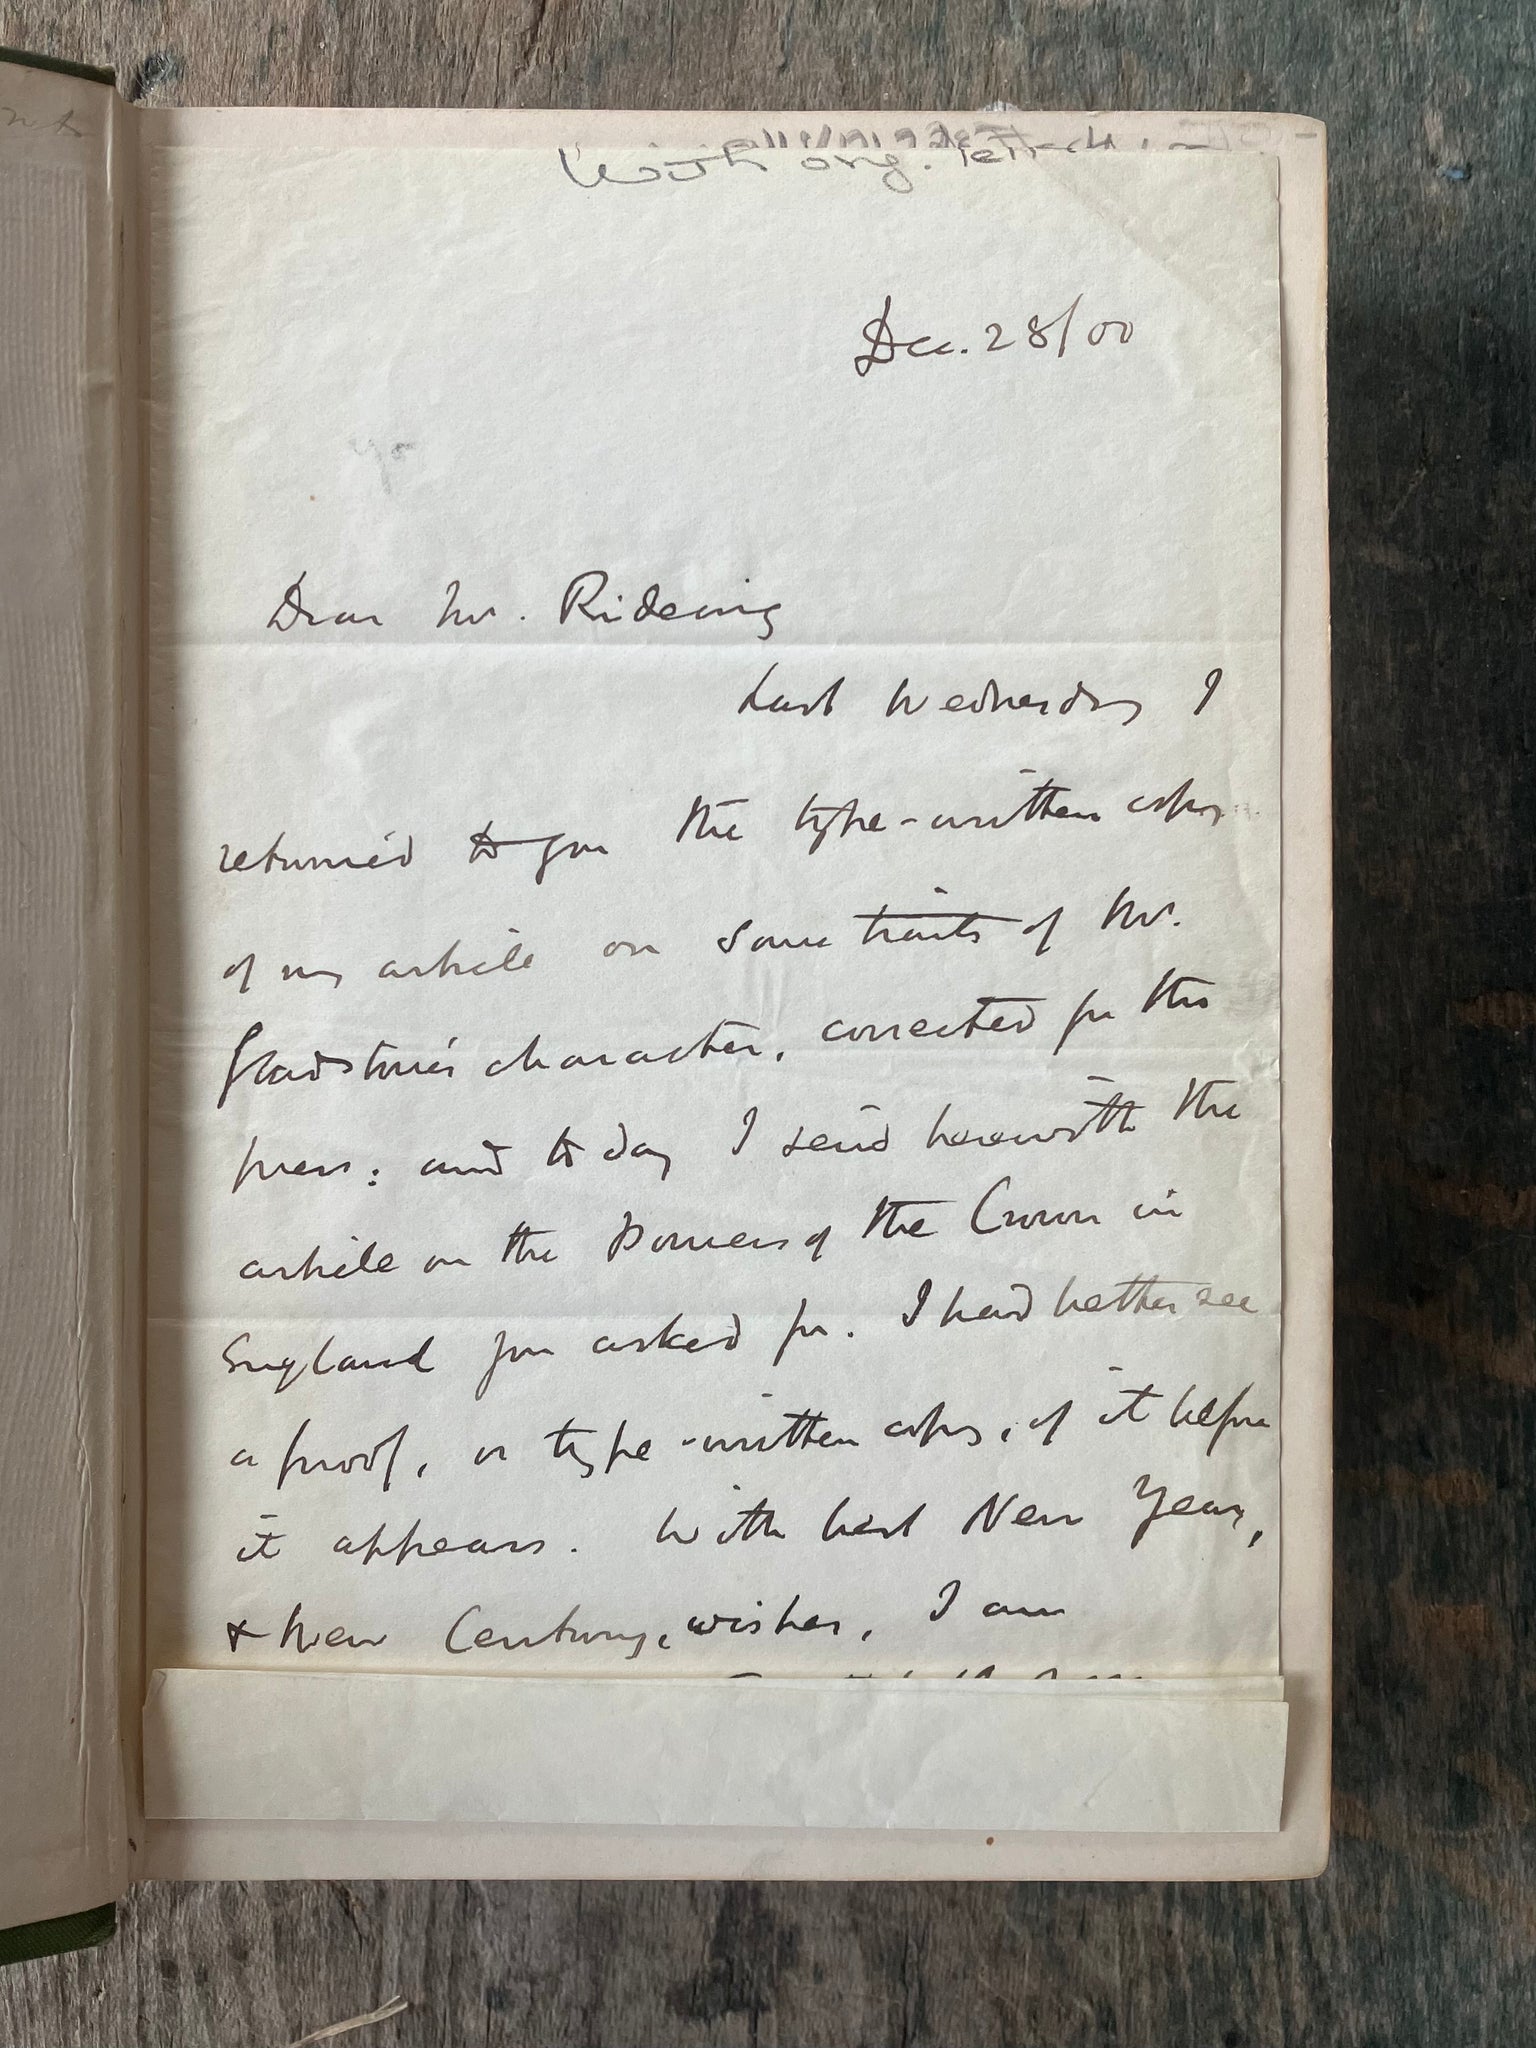 With orig. letter
Dec. 28/00
Dear Mr. Rideing
Last Wednesday I
returned to you the type-written copy
of my article on some traits of Mr.
Gladstone's character, corrected for the
press: and to day I send herewith the
article on the Powers of the Crown in
England you asked for. I had better see
a proof, or type-written copy, of it before
it appears. With best New Year,
& New Century, wishes, I am